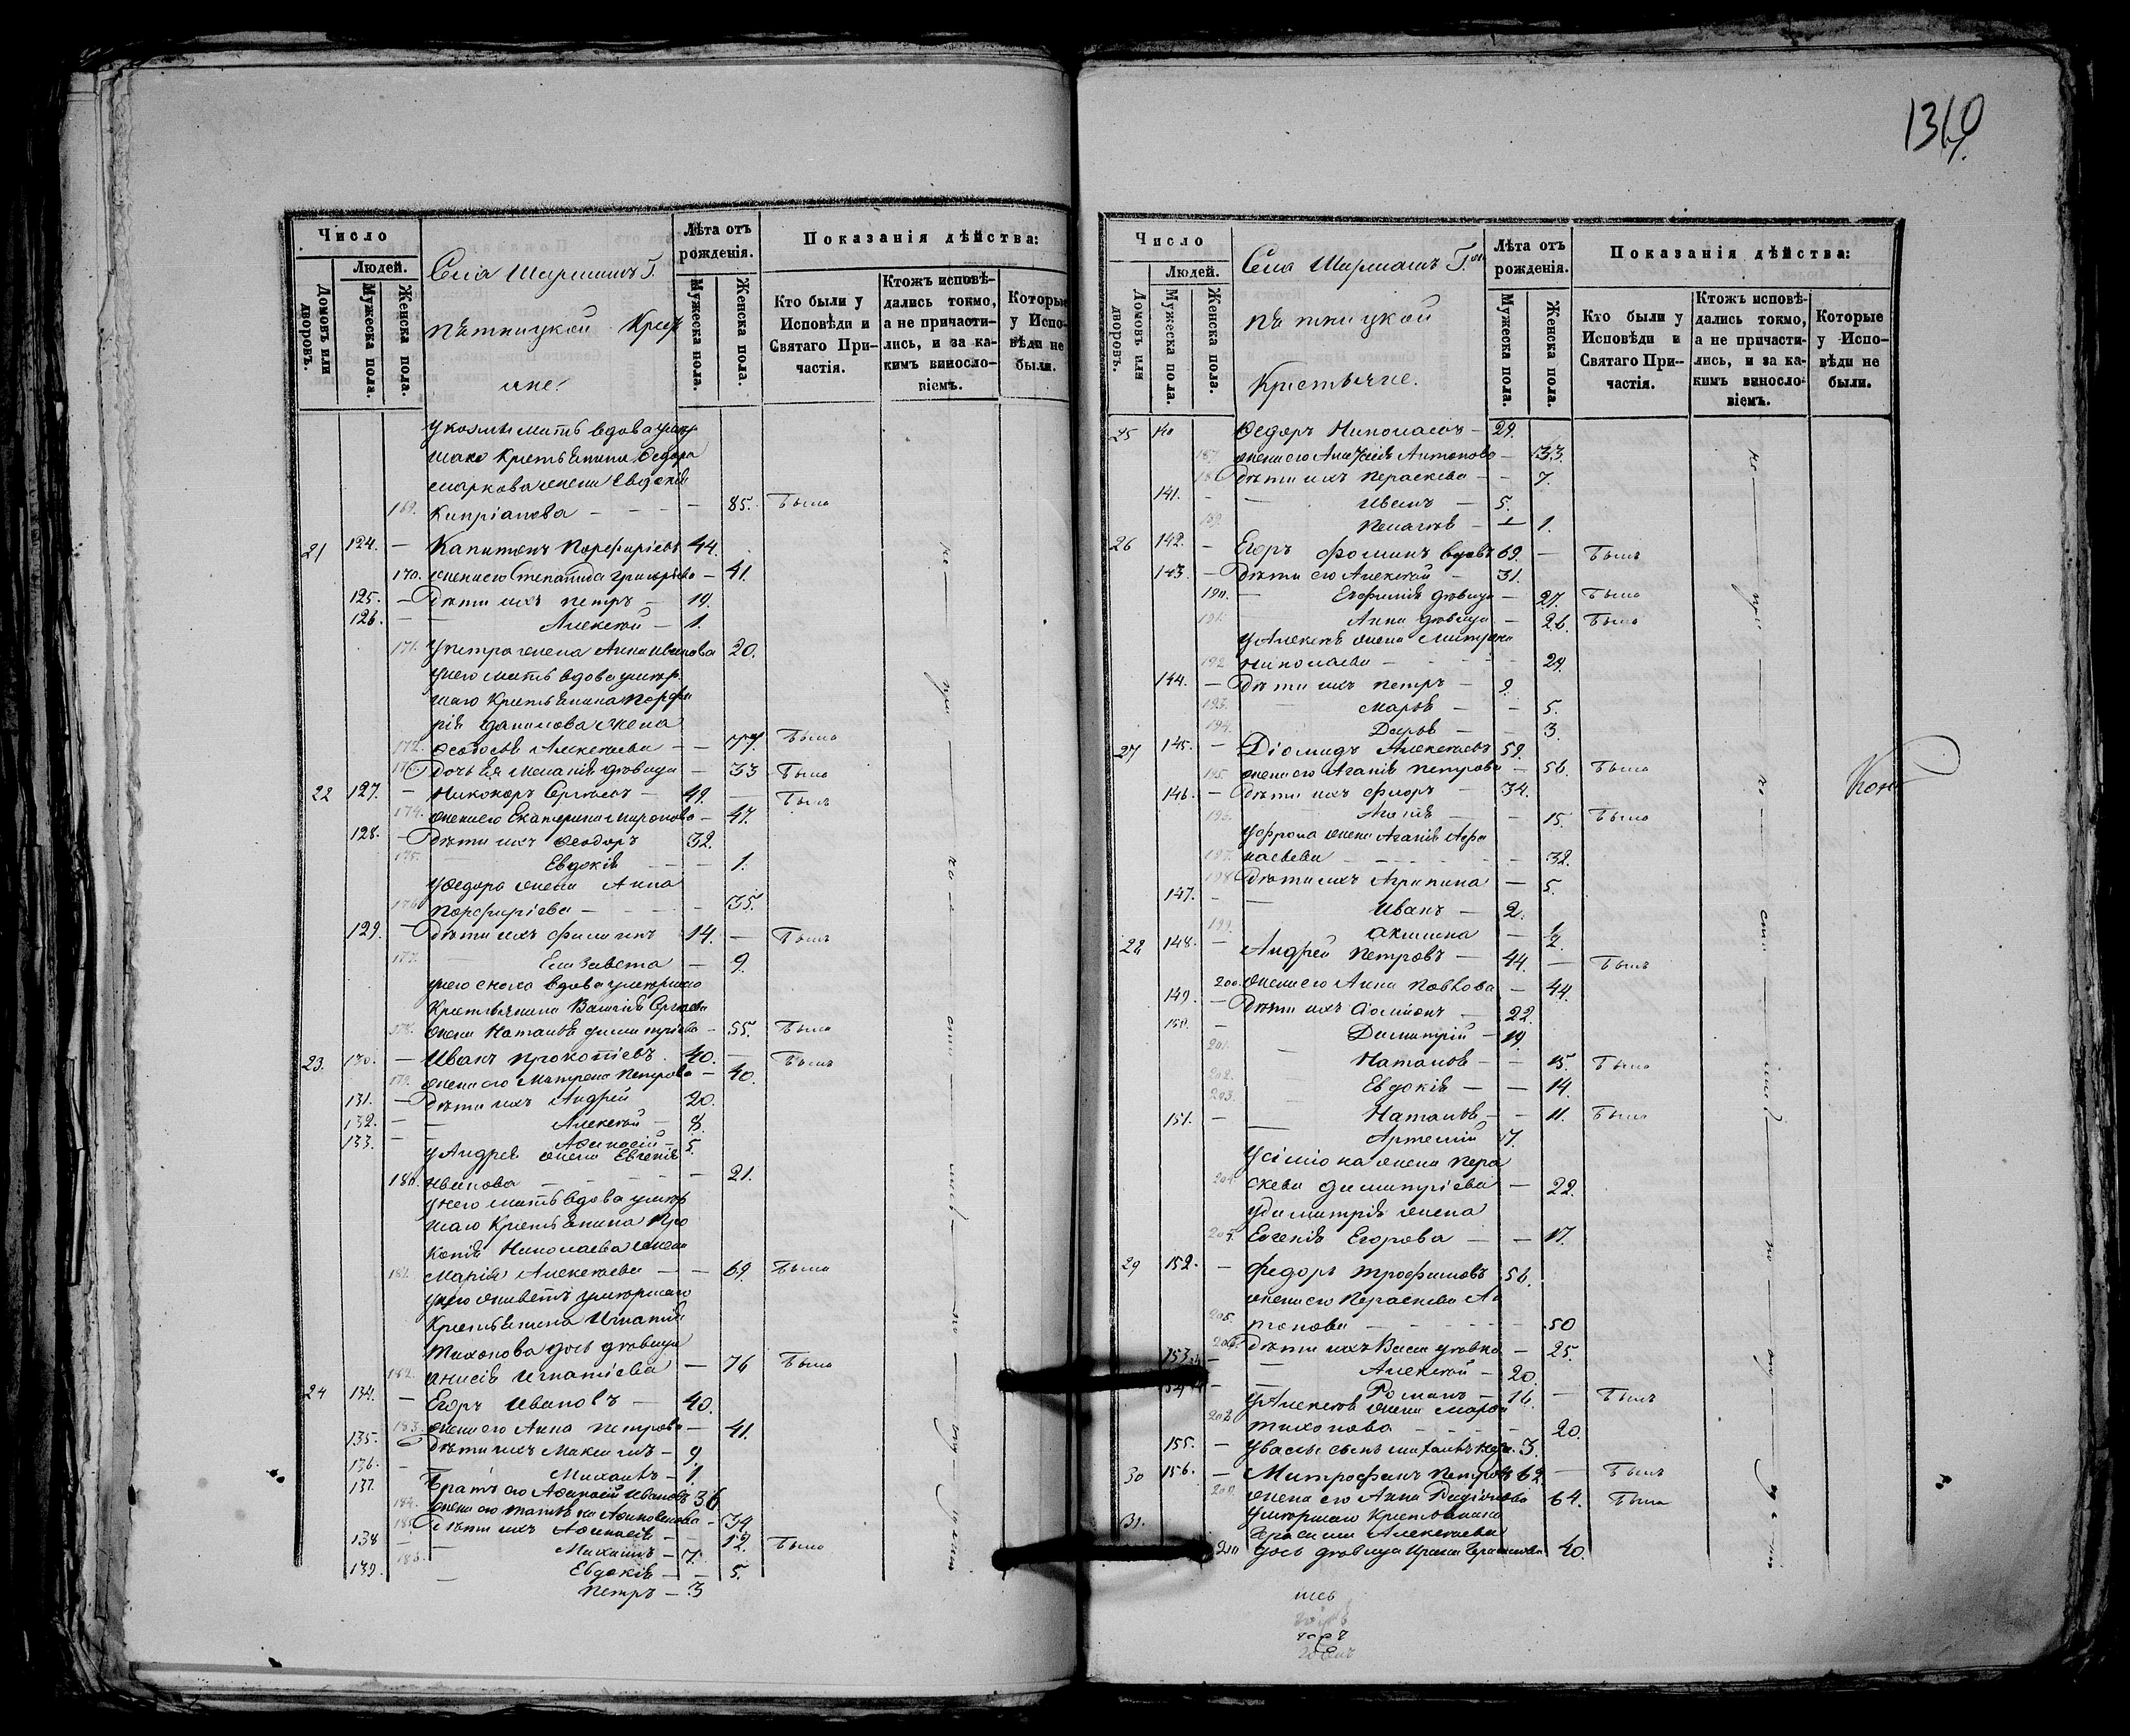 Число
Людей.
Домовъ или дворовъ.
Мужеска пола.
Женска пола.
Села
пѣтницкой Крес
яне.
Лѣта отъ рожденія.
Мужеска пола.
Женска пола.
Показанія дѣйства:
Кто были у Исповѣди и Святаго Причастія.
Ктожъ исповѣдались токмо, а не причастились, и за какимъ винословіемъ.
Которые у Исповѣди не были.
мать вдова умер
шаго Крестьянина Федора
Маркова жена Евдокія
169. Кипріанова — 85. Была
21 124. — Капитонъ Порфиріевъ 44.
170. жена его Степанида Григорьева — 41.
125. — Дѣти ихъ Петръ — 19.
126. — Алексѣй — 1.
171. У Петра жена Анна Иванова 20.
у него мать вдова умер
шаго Крестьянина Порфи
рія Данилова жена
172. Феодосья Алексѣева — 77. Была
173. Дочь Ея Меланія дѣвица — 33 Была
22 127. — Никоноръ Сергѣевъ — 49. — Былъ
174. жена его Екатерина Миронова — 47.
128. — Дѣти ихъ Феодоръ 32.
175. Евдокія — 1.
У Федора жена Анна
176. Порфиріева — 35.
129. — Дѣти ихъ Филипъ 14. — Былъ
177. — Елизавета — 9.
у него сноха вдова умершаго
Крестьянина Василія Сергѣева
178. жена Наталья Димитріева — 55. Была
23. 130. — Иванъ Прокопіевъ. 40. — Былъ
179. жена его Матрена Петрова — 40.
131. — Дѣти ихъ Андрей 20.
132. — Алексѣй — 8.
133. — Афанасій — 5.
У Андрея жена Евгенія
180. Иванова — 21.
у него мать вдова умер
шаго Крестьянина Про
копія Николаева жена
181. Марія Алексѣева — 69. Была
у него живетъ умершаго
Крестьянина Игнатія
Тихонова дочь дѣвица
182. Анисія Игнатіева — 76 Была
24 134. — Егоръ Ивановъ — 40.
183. жена его Анна Петрова — 41.
135. Дѣти ихъ Максимъ — 9
136. — Михаилъ — 1.
137. Братъ его Афанасій Ивановъ 36
184. жена его Татьяна — 34
185. Дѣти ихъ — 12. Была
138 — Михаилъ — 7.
186. Евдокія — 5.
139. — Петръ — 3
1360
Число
Людей.
Домовъ или дворовъ.
Мужеска пола.
Женска пола.
Села
пѣтницкой
Крестьяне.
Лѣта отъ рожденія.
Мужеска пола.
Женска пола.
Показанія дѣйства:
Кто были у Исповѣди и Святаго Причастія.
Ктожъ исповѣдались токмо, а не причастились, и за какимъ винословіемъ.
Которые у Исповѣди не были.
25 140 Федоръ Николаевъ — 29.
187. жена его Антонова — 33.
188. Дѣти ихъ Параскева — 7.
141. — Иванъ — 5.
189. Пелагія — 1.
26 142. — Егоръ Фоминъ вдовъ 69. — Былъ
143. — Дѣти его Алексѣй — 31.
190. — Евфимія дѣвица — 27. Была
191. Анна дѣвица — 26. Была
У Алексѣя жена Матрена
192 Николаева — 29.
144. — Дѣти ихъ Петръ — 9.
193. Марья — 5.
194. Дарья — 3.
27 145. — Діомидъ Алексѣевъ 59.
195. жена его Агапія Петрова — 56. Была
146. — Дѣти ихъ Флоръ — 34.
196. — 15. Была
У Флора жена Агапія Афа
197. насьева — 32.
198 Дѣти ихъ Агрипина — 5.
147. — Иванъ — 2.
199. Акилина — 1/2
28 148. — Андрей Петровъ — 44. — Былъ
200 жена его Анна Павлова — 44.
149. — Дѣти ихъ — 22.
150. — Димитрій — 19.
201. — Наталья — 15. Была
202. — Евдокія — 14.
203. — Наталья — 11. Была
151. — Артемій 7.
жена Пара
204. скева Димитріева — 22.
У Димитрія жена
205. Евгенія Егорова — 17.
29 152. — Федоръ Трофимовъ 56.
жена его Параскева Ан
205. тонова — 50
206. Дѣти ихъ — 25.
153. — Алексѣй — 20.
— Романъ — 16. — Былъ
У Алексѣя жена Марфа
208 Тихонова — 20.
155. — 3.
30 156. — Митрофанъ Петровъ 62 — Былъ
209. жена его Анна Родіонова 64. Была
31. Умершаго Крестьянина
Герасима Алексѣева
210 дочь дѣвица Ирина Герасимова 40.